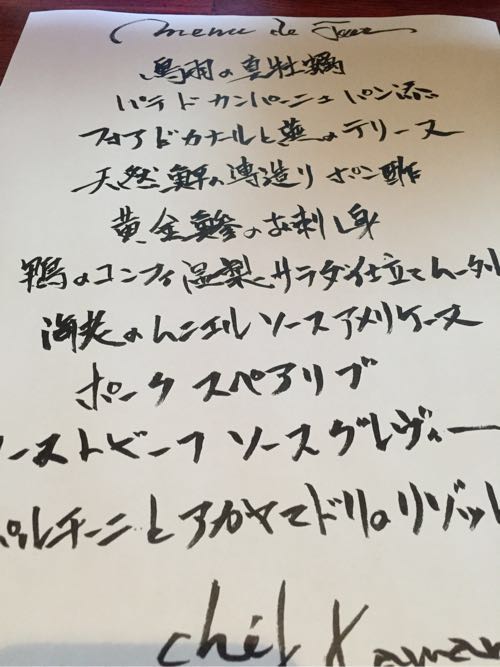 menu de Jour
鳥羽の真牡蠣
パテ ド カンパーニュ パン添
フォアドカナールと蕪のテリーヌ
天然鮃の薄造り ポン酢
黄金鯵のお刺し身
鴨のコンフィ 温製サラダ仕立て
海老のムニエル ソースアメリケーヌ
ポーク スペアリブ
ーストビーフ ソースグレヴィー
ポルチーニとアカヤマドリのリゾット
chef